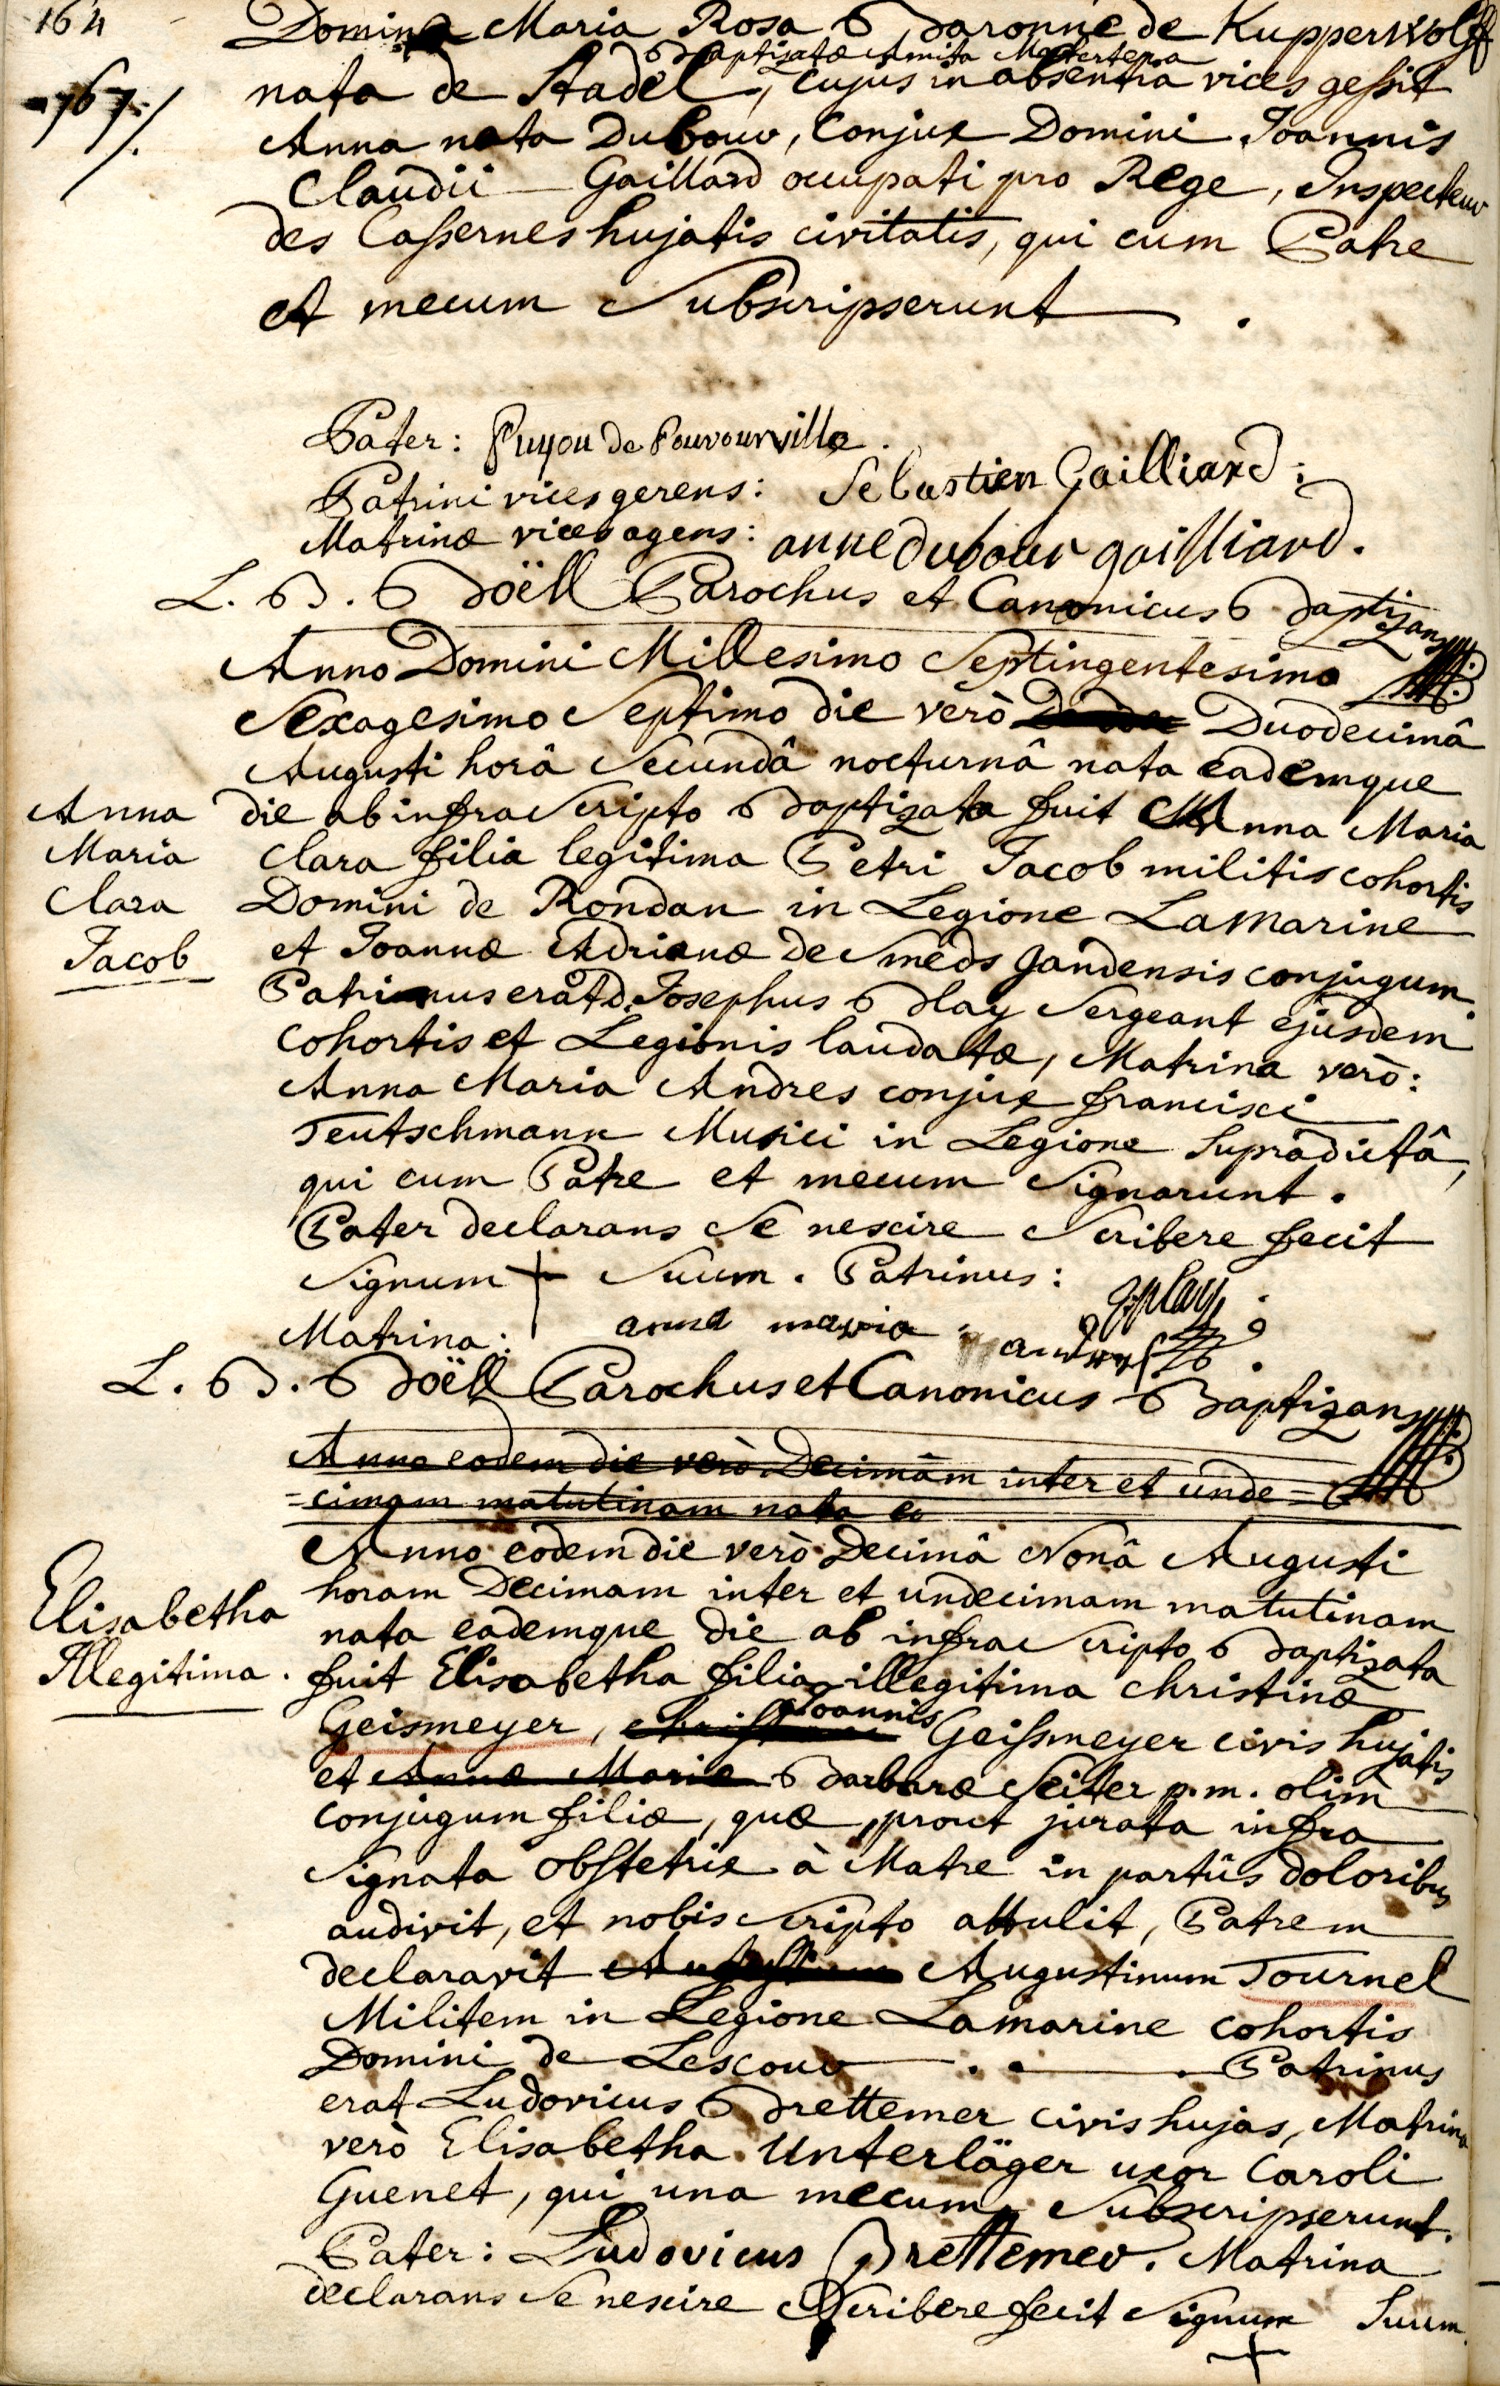 164
Domina Maria Rosa Baronne de Kupperwolff
Baptizatæ Amita Matertera
1767./.
nata de Stadel, cujus in absentia vices gessit
Anna nata Dubour, Conjux Domini Joannis
Claudii Gaillard occupati pro Rege, Inspecteur
des Cassernes hujatis civitatis, qui cum Patre
et mecum Subscripserunt .
Pater: Puyou de Pouvourville.
Patrini vices gerens: Sebastien Gailliard:
Matrinæ vices agens: anne dubour gailliard.
L. B. Boëll Parochus et Canonicus Baptizans
Anno Domini Millesimo Septingentesimo
Sexagesimo Septimo die verò Duodecimâ
Augusti horâ Secundâ nocturnâ nata eademque
die ab infra Scripto Baptizata fuit Anna Maria
Clara filia legitima Petri Jacob militis cohortis
Domini de Rondan in Legione Lamarine
et Joannæ Adrianæ de Smeds gandensis conjugum.
Patrinus erat D. Josephus Blay Sergeant ejusdem
Cohortis et Legionis laudatæ, Matrina verò:
Anna Maria Andres conjux francisci
Teutschmann Musici in Legione Supradictâ,
qui cum Patre et mecum Signarunt.
Pater declarans Se nescire Scribere fecit
Signum + Suum. Patrinus: Jplay.
Matrina: anna maria andres
Anna
Maria
Clara
Jacob
L. B. Boëll Parochus et Canonicus Baptizans
Anno eodem die verò Decimam inter et unde=
=cimam matutinam nata ea
Anno eodem die verò Decimâ Nonâ Augusti
horam Decimam inter et undecimam matutinam
nata eademque die ab infra Scripto Baptizata
fuit Elisabetha filia illegitima Christinæ
Geismeyer, Joannis Geissmeyer civis hujatis
et Annæ Mariæ Barbaræ Seiter p.m. olim
conjugum filiæ, quæ, prout jurata infra
Signata Obstetrix à Matre in partûs doloribus
audivit, et nobis Scripto attulit, Patrem
declaravit Augustinum Tournel
Militem in Legione Lamarine cohortis
Domini de Lescour . . . Patrinus
erat Ludovicus Brettemer civis hujas, Matrina
verò Elisabetha Unterläger uxor Caroli
Guenet, qui una mecum Subscripserunt.
Pater: Ludovicus Brettemer. Matrina
declarans Se nescire Scribere fecit Signum Suum.
+
Elisabetha
Illegitima.